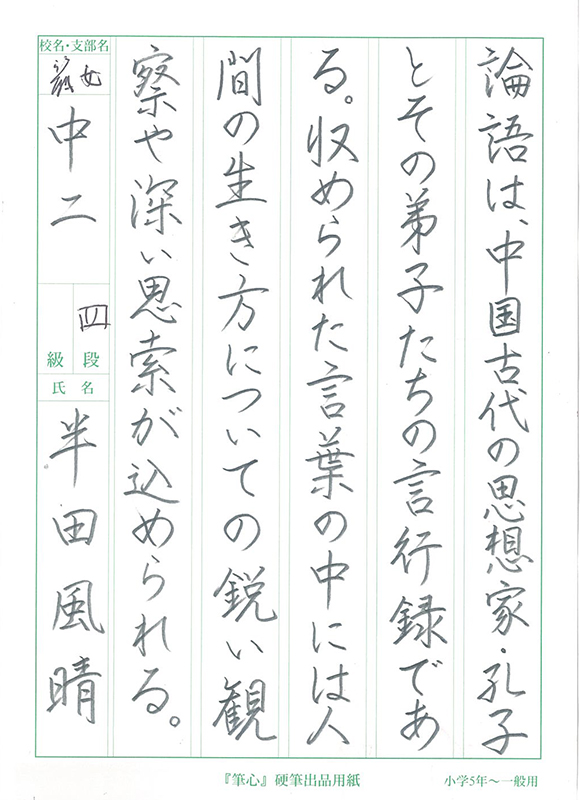 論語は、中国古代の思想家・孔子
とその弟子たちの言行録であ
る。収められた言葉の中には人
間の生き方についての鋭い観
察や深い思索が込められる。
校名・支部名
中二
四
級 段
氏名
半田風晴
『筆心』硬筆出品用紙
小学5年〜一般用